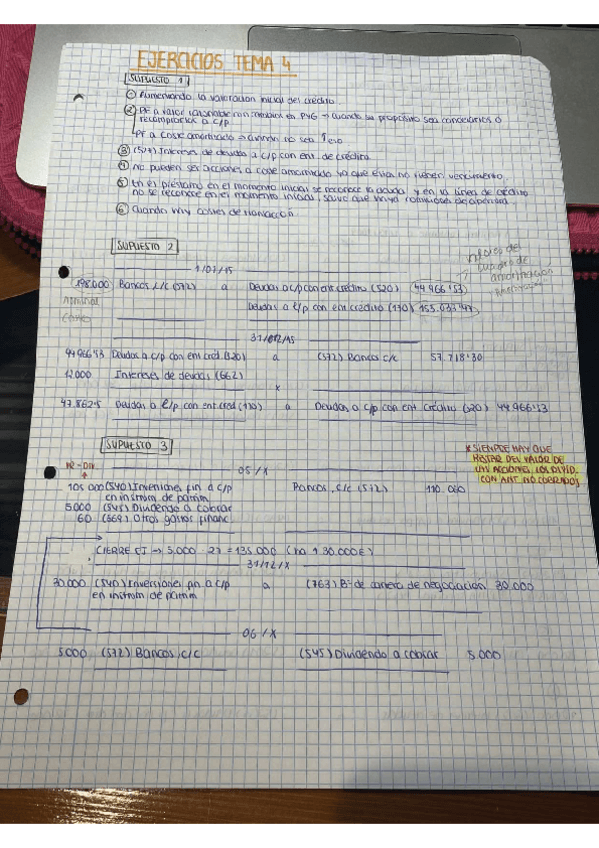 EJERCICIOS TEMA 4
SUPUESTO 1
① Aumentando la valoración inicial del crédito
② PF a valor razonable con cambios en PyG → cuando su propósito sea cancelarlos o
recomprarlos a c/p
PF a coste amortizado → cuando no sea
③ (527) Intereses de deudas a c/p con ent. de crédito
④ No pueden ser acciones a coste amortizado ya que estas no tienen vencimiento
⑤ En el préstamo en el momento inicial se reconoce la deuda y en la línea de crédito
no se reconoce en el momento inicial, salvo que haya comisiones de apertura
⑥ Cuando hay costes de transacción
SUPUESTO 2
valores del
cuadro de
amortización
1/07/15
198.000 Bancos c/c (572) a Deudas a c/p con ent crédito (520) 44.966'53
nominal
Deudas a l/p con ent crédito (170)
31/012/15
Deudas a c/p con ent cred (520) a (572) Bancos c/c 57.718'30
12.000 Intereses de deudas (662)
x
47.862'5 Deudas a l/p con ent cred (170) a Deudas a c/p con ent crédito (520)
SUPUESTO 3
* SIEMPRE HAY QUE
RESTAR DEL VALOR DE
LAS ACCIONES, LOS DIVID.
CON ANT. NO COBRADOS
05/X
105.000 (540) Inversiones fin a c/p Bancos, c/c (572) 110.060
en instrum de patrim
5000 (545) Dividendo a cobrar
60 (669) Otros gastos financ
CIERRE EJ → 5.000 · 27 = 135.000 (ha ↑ 30.000€)
31/12/X
30.000 (540) Inversiones fin a c/p a (763) Bº de cartera de negociación 30.000
en instrum de patrim
06/X
5.000 (572) Bancos, c/c (545) Dividendo a cobrar 5.000